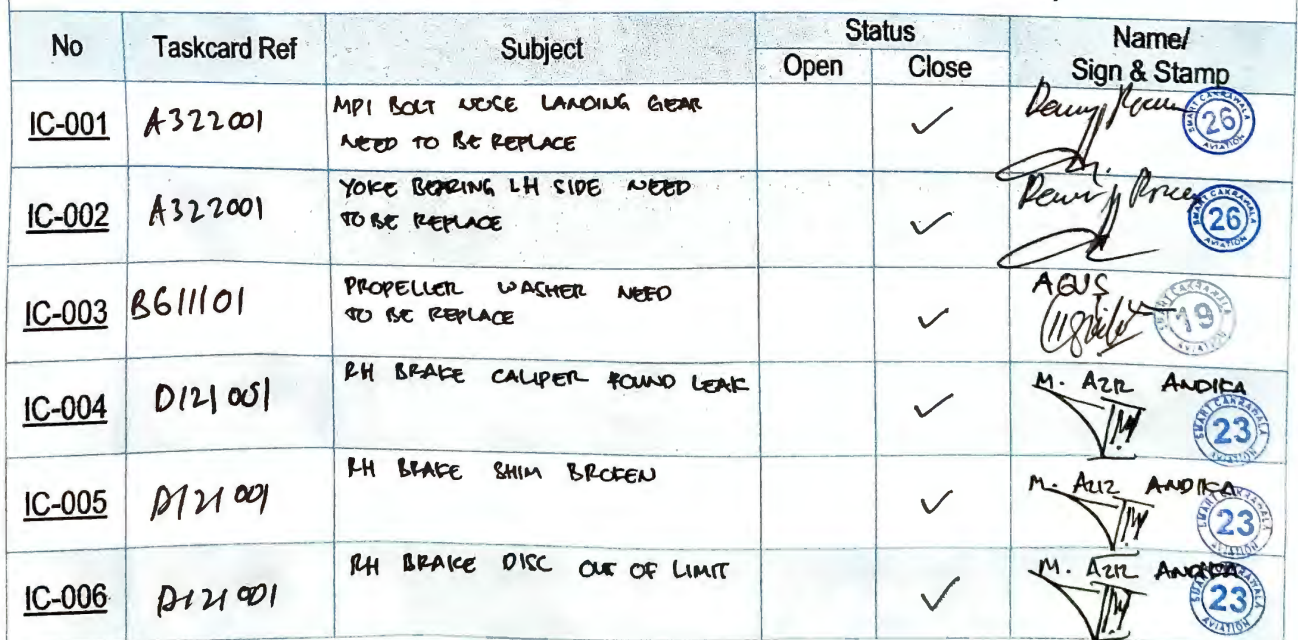 No Taskcard Ref Subject Status Name/
Open Close Sign & Stamp
IC-001 A322001 MPI BOLT NOSE LANDING GEAR
NEED TO BE REPLACE
SMART CAKRAWALA AVIATION 26
IC-002 A322001 YOKE BEARING LH SIDE NEED
TO BE REPLACE
SMART CAKRAWALA AVIATION 26
IC-003 B611101 PROPELLER WASHER NEED
TO BE REPLACE
AGUS
SMART CAKRAWALA AVIATION 19
IC-004 D121001 RH BRAKE CALIPER FOUND LEAK
M. AZIZ ANDIKA
SMART CAKRAWALA AVIATION 23
IC-005 D121001 RH BRAKE SHIM BROKEN
M. AZIZ ANDIKA
SMART CAKRAWALA AVIATION 23
IC-006 D121001 RH BRAKE DISC OUT OF LIMIT
M. AZIZ ANDIKA
SMART CAKRAWALA AVIATION 23